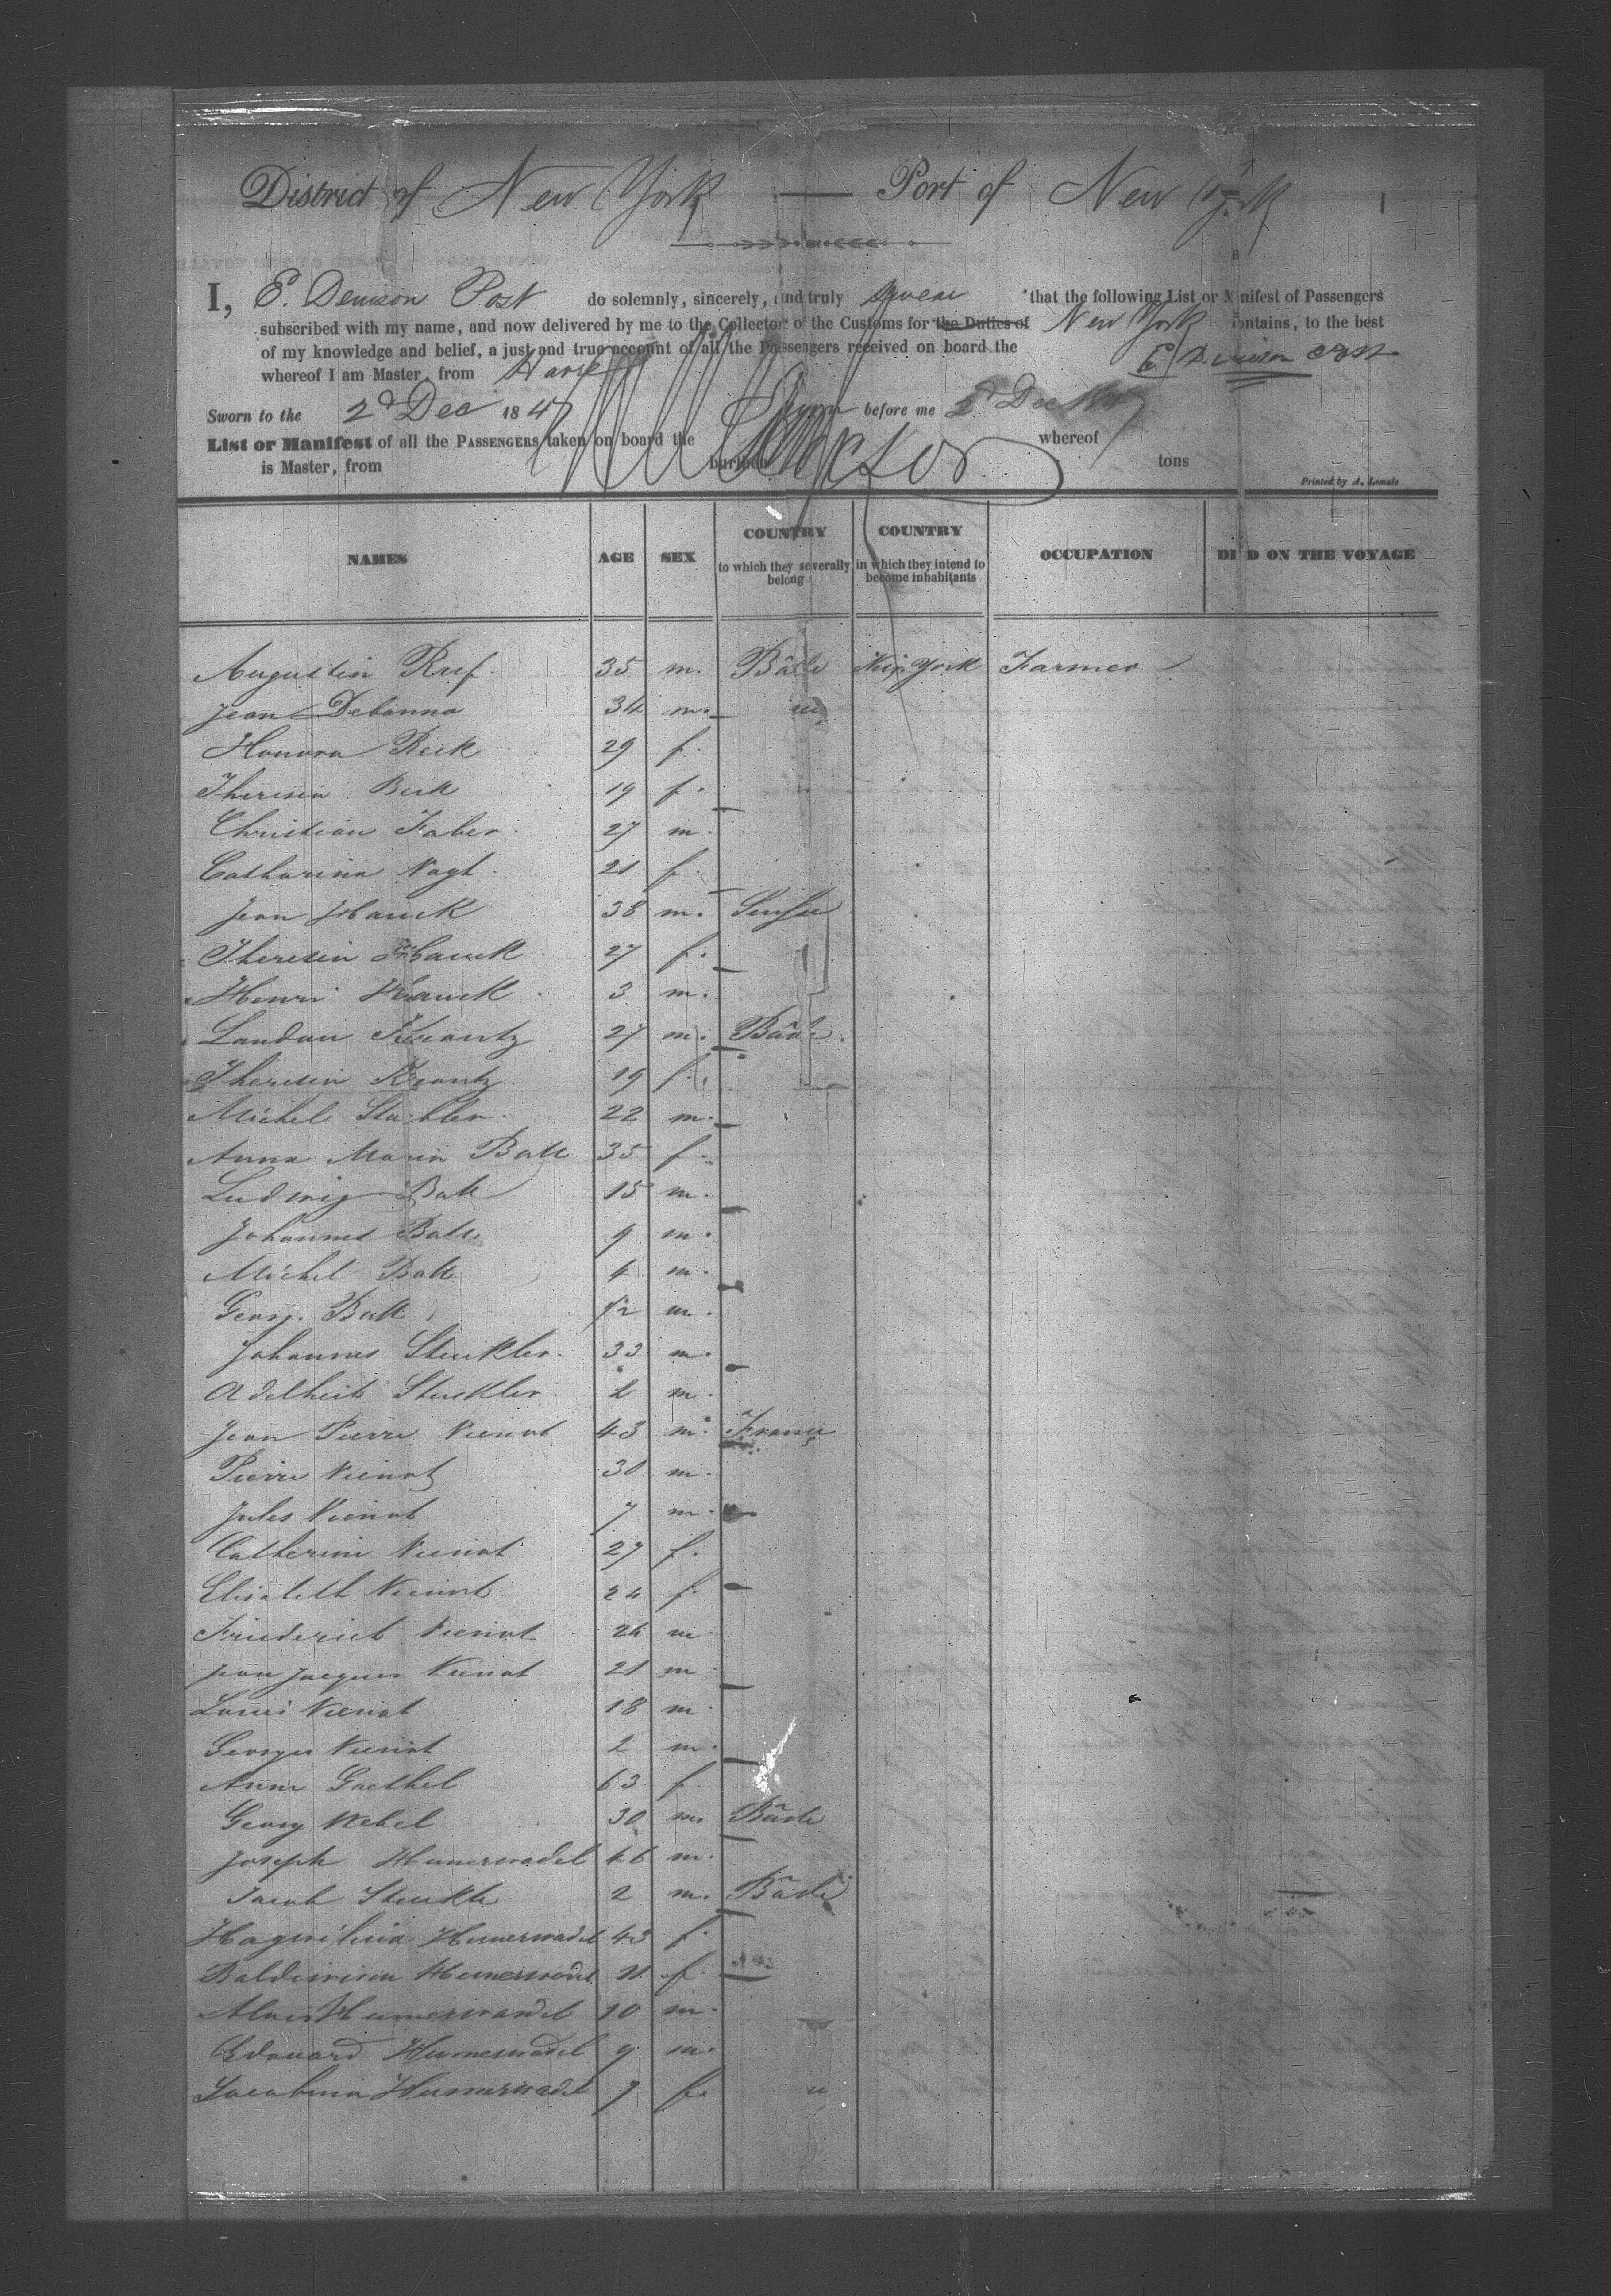 District of New York — Port of New York 1
I, E. Denison Post do solemnly, sincerely, and truly swear that the following List or Manifest of Passengers
subscribed with my name, and now delivered by me to the Collector of the Customs for the Duties of New York contains, to the best
of my knowledge and belief, a just and true account of all the Passengers received on board the
whereof I am Master, from Havre E. Denison Post
Sworn to the 2d Dec 1847 before me 2d Dec 1847
List or Manifest of all the PASSENGERS taken on board the whereof
is Master, from burthen tons
Printed by A. Lemale
NAMES AGE SEX COUNTRY to which they severally belong COUNTRY in which they intend to become inhabitants OCCUPATION DIED ON THE VOYAGE
Augustin Ruf 35 m. Bâle New York Farmer
Jean Debanna 34 m. "
Honora Ruk 29 f.
Theresia 19 f.
Christian Faber 27 m.
Catharina Vogt 21 f.
Jean Hauck 38 m.
Theresia Hauck 27 f.
Henri Hauck 3 m.
Landau Krantz 27 m. Bâle
Theresia Krantz 19 f.
Michel 22 m.
Anna Maria Batt 35 f.
Ludwig Batt 15 m.
Johannes Batt 9 m.
Michel Batt 4 m.
Georg. Batt m.
Johannes Steukler 33 m.
Adelheit Steukler 2 m.
Jean Pierre Vienot 43 m. France
Pierre Vienot 30 m.
Jules Vienot 7 m.
Catherine Vienot 27 f.
Elisabeth Vienot 24 f.
Friederich Vienot 26 m.
Jean Jacques Vienot 21 m.
Louis Vienot 18 m.
Georges Vienot 2 m.
Anne Goethel 63 f.
Georg Webel 30 m. Bâsle
Joseph Humerwadel 46 m.
Jacob Steukle 2 m. Bâsle
Humerwadel 43 f.
Humerwadel 11 f.
Alois Humerwadel 10 m.
Edouard Humerwadel 9 m.
Jacobina Humerwadel 7 f. "